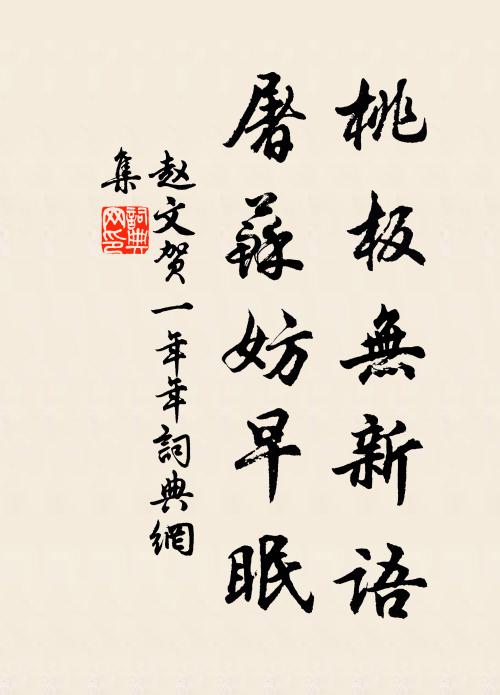 桃板無新語
屠蘇妨早眠
赵文贺一年年詞典網
集
詞典网印